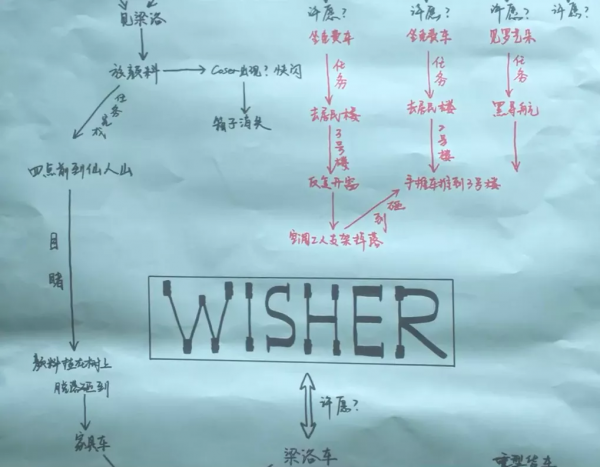 许愿?
许愿?
许愿?
许愿?
见梁洛
坐免费车
坐免费车
见罗克朵
放颜料
Coser出现? 快闪
任务
任务
任务
任务完成
箱子消失
去居民楼
去居民楼
黑哥
3号楼
7号楼
四点前到仙人山
反复开窗
手推车推到3号楼
砸到
空调工人支架掉落
目睹
WISHER
颜料挂在树上
砸到
许愿?
家具车
梁洛车
重型货车